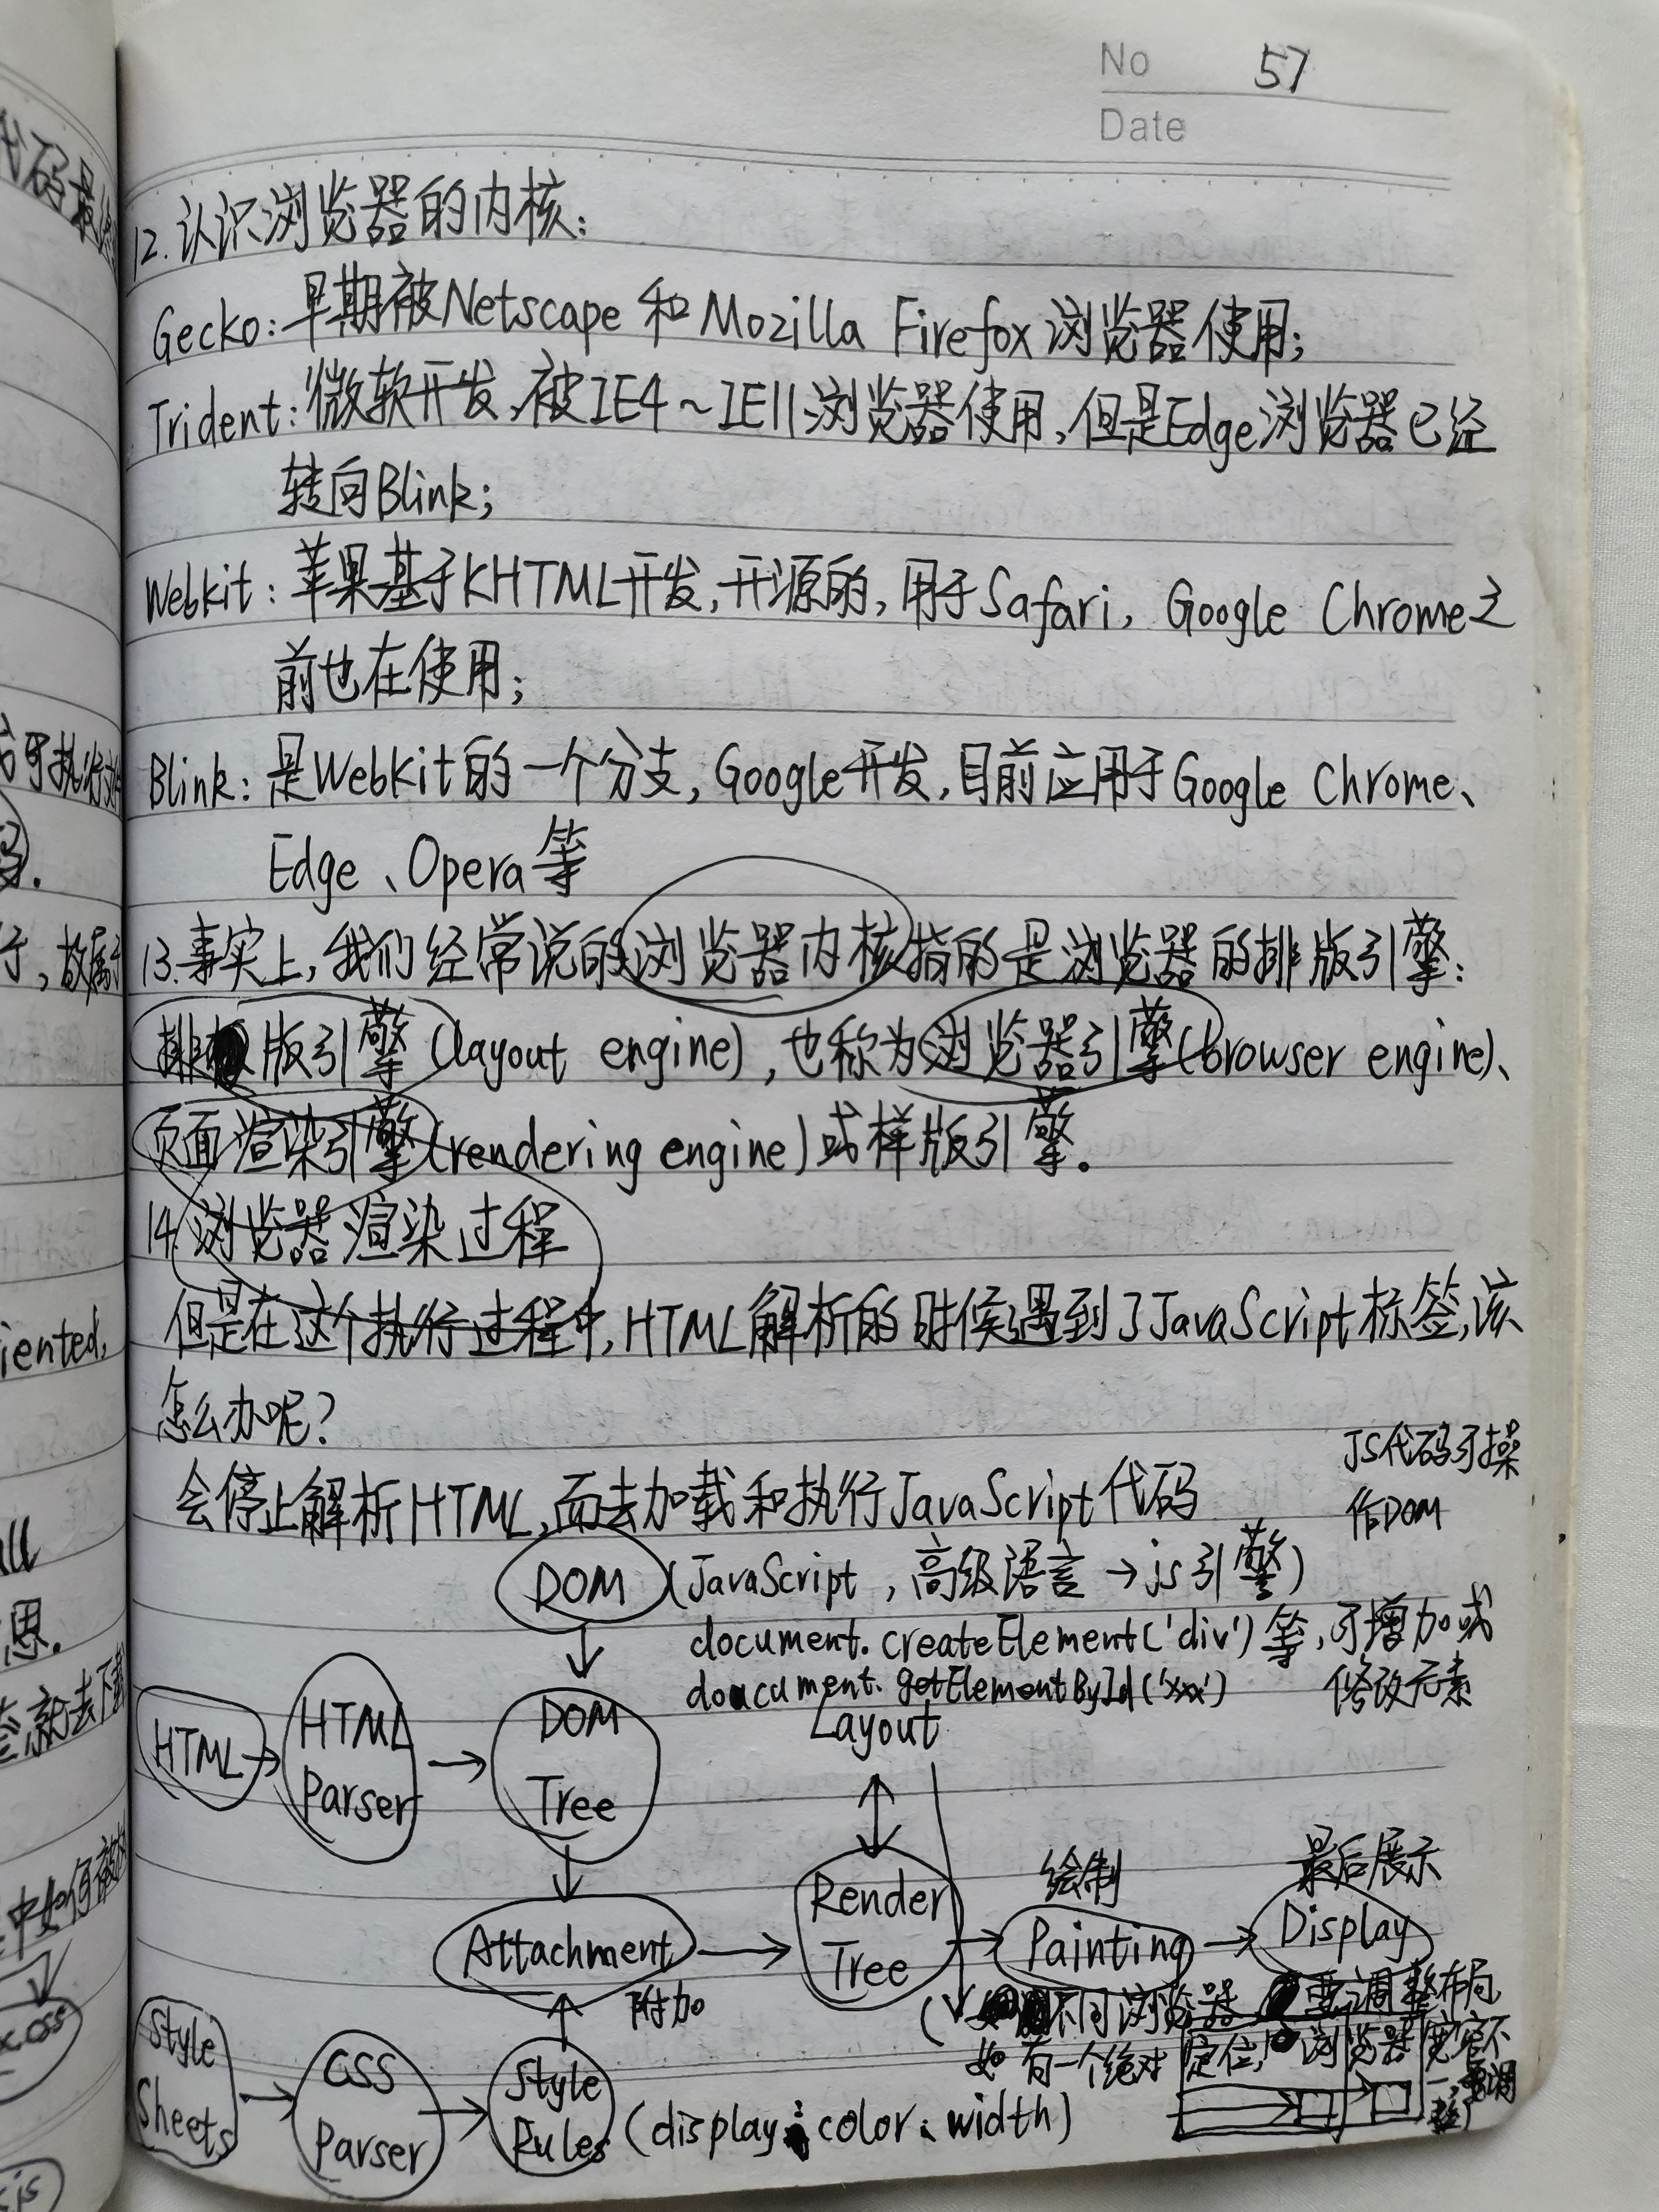 No 57
Date
12.认识浏览器的内核:
Gecko:早期被Netscape 和Mozilla Firefox浏览器使用;
Trident:微软开发,被IE4~IE11浏览器使用,但是Edge浏览器已经
转向Blink;
Webkit:苹果基于KHTML开发,开源的,用于Safari, Google Chrome之
前也在使用;
Blink:是Webkit的一个分支,Google开发,目前应用于Google Chrome、
Edge、Opera等
13.事实上,我们经常说的浏览器内核指的是浏览器的排版引擎:
排版引擎(layout engine),也称为浏览器引擎(browser engine)、
页面渲染引擎(rendering engine)或样版引擎。
14.浏览器渲染过程
但是在这个执行过程中,HTML解析的时候遇到了JavaScript标签,该
怎么办呢?
会停止解析HTML,而去加载和执行JavaScript代码
JS代码可操
作DOM
DOM (JavaScript,高级语言→js引擎)
document.createElement('div')等,可增加或
document.getElementById('xxx') 修改元素
Layout
HTML → HTML Parser → DOM Tree
绘制 最后展示
Attachment → Render Tree → Painting → Display
附加
(不同浏览器 要调整布局
如有一个绝对定位, 浏览器宽度不
一,需调
整)
Style Sheets → CSS Parser → Style Rules (display、color、width)
代码最
可执行
行,故属于
iented,
all
思.
就去下载
中如何被
x.css
.js